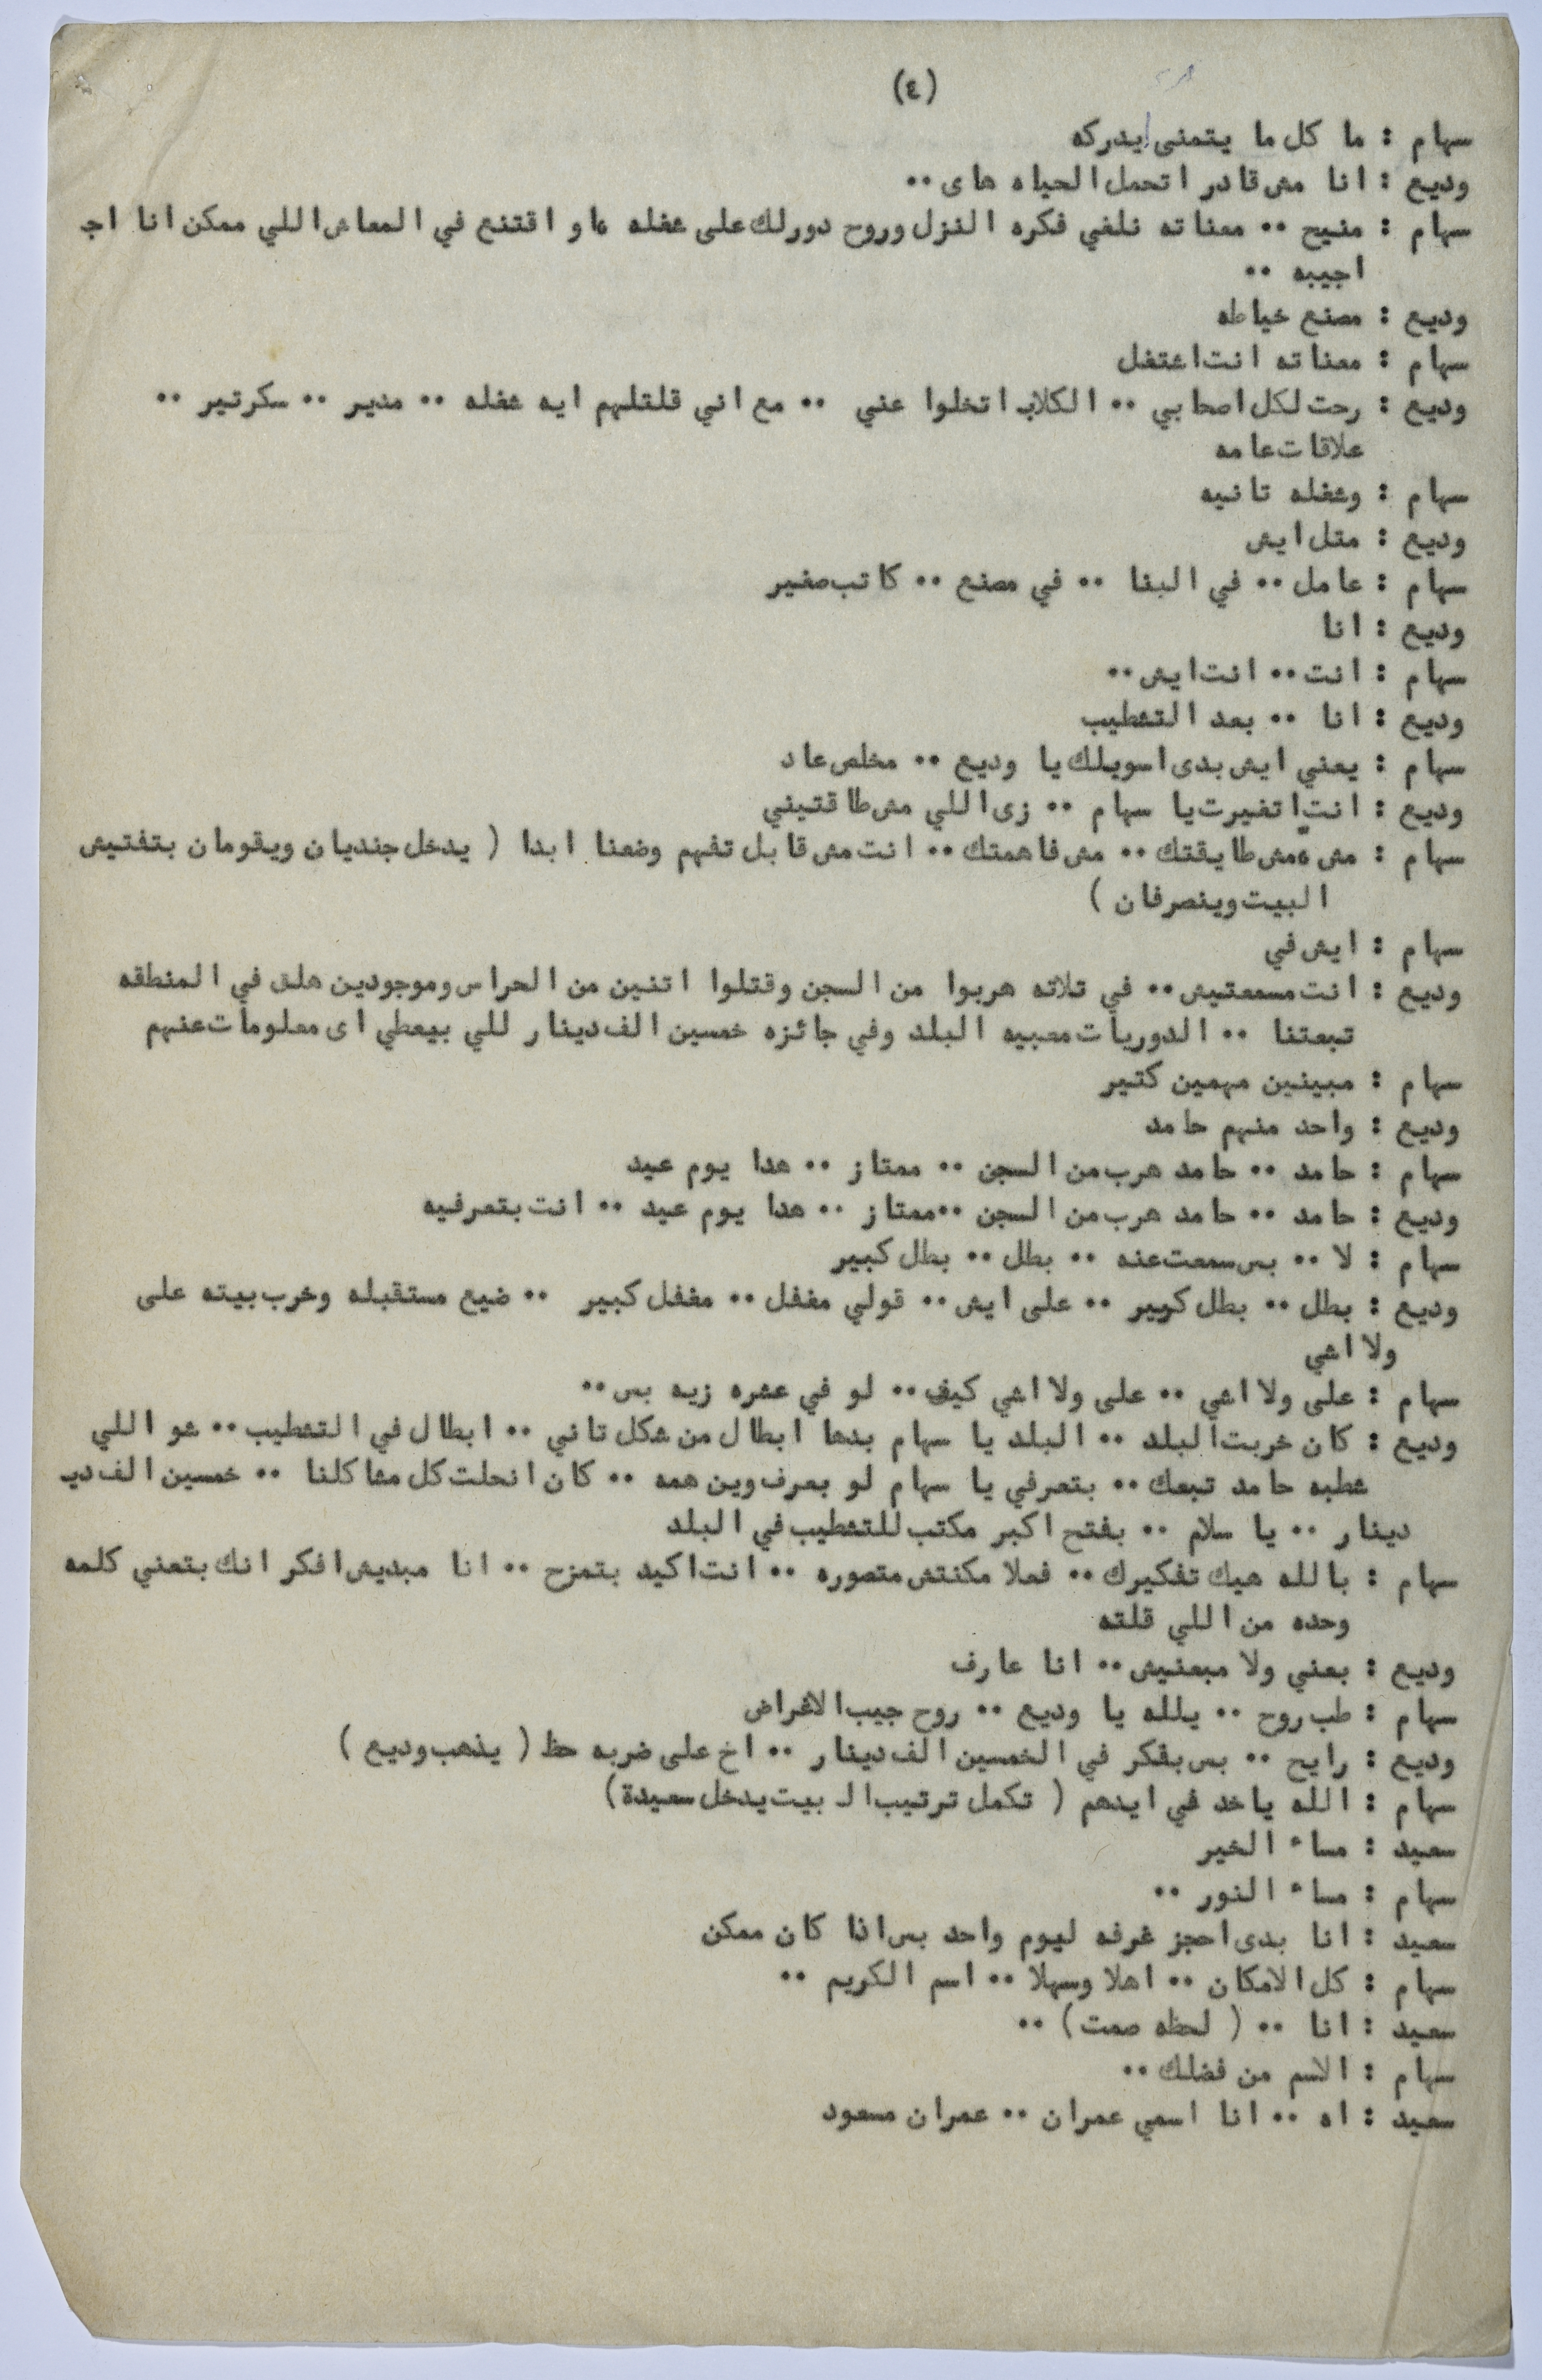 (٤)
سهام : ما كل ما يتمنى يدركه
وديع : انا مش قادر اتحمل الحياه هاى ..
سهام : منيح .. معناته نلغي فكره النزل وروح دورلك على شغله او اقتنع في المعاش اللي ممكن انا اج
اجيبه ..
وديع : مصنع خياطه
سهام : معناته انت اشتغل
وديع : رحت لكل اصحابي .. الكلاب اتخلوا عني .. مع اني قلتلهم ايه شغله .. مدير .. سكرتير ..
علاقات عامه
سهام : وشغله تانيه
وديع : متل ايش
سهام : عامل .. في البنا .. في مصنع .. كاتب صغير
وديع : انا
سهام : انت .. انت ايش ..
وديع : انا .. بعد التشطيب
سهام : يعني ايش بدى اسويلك يا وديع .. مخلص عاد
وديع : انت اتغيرت يا سهام .. زى اللي مش طاقتيني
سهام : مش مش طايقتك .. مش فاهمتك .. انت مش قابل تفهم وضعنا ابدا ( يدخل جنديان ويقومان بتفتيش
البيت وينصرفان )
سهام : ايش في
وديع : انت مسمعتيش .. في تلاته هربوا من السجن وقتلوا اتنين من الحراس وموجودين هلق في المنطقه
تبعتنا .. الدوريات معبيه البلد وفي جائزه خمسين الف دينار للي بيعطي اى معلومات عنهم
سهام : مبينين مهمين كتير
وديع : واحد منهم حامد
سهام : حامد .. حامد هرب من السجن .. ممتاز .. هدا يوم عيد
وديع : حامد .. حامد هرب من السجن .. ممتاز .. هدا يوم عيد .. انت بتعرفيه
سهام : لا .. بس سمعت عنه .. بطل .. بطل كبير
وديع : بطل .. بطل كبير .. على ايش .. قولي مغفل .. مغفل كبير .. ضيع مستقبله وخرب بيته على
ولا اشي
سهام : على ولا اشي .. على ولا اشي كيف .. لو في عشره زيه بس ..
وديع : كان خربت البلد .. البلد يا سهام بدها ابطال من شكل تاني .. ابطال في التشطيب .. شو اللي
شطبه حامد تبعك .. بتعرفي يا سهام لو بعرف وين همه .. كان انحلت كل مشاكلنا .. خمسين الف دي
دينار .. يا سلام .. بفتح اكبر مكتب للتشطيب في البلد
سهام : بالله هيك تفكيرك .. فعلا مكنتش متصوره .. انت اكيد بتمزح .. انا مبديش افكر انك بتعني كلمه
وحده من اللي قلته
وديع : بعني ولا مبعنيش .. انا عارف
سهام : طب روح .. يلله يا وديع .. روح جيب الاغراض
وديع : رايح .. بس بفكر في الخمسين الف دينار .. اخ على ضربه حظ ( يذهب وديع )
سهام : الله ياخد في ايدهم ( تكمل ترتيب الـ بيت يدخل سعيدة )
سعيد : مساء الخير
سهام : مساء النور ..
سعيد : انا بدى احجز غرفه ليوم واحد بس اذا كان ممكن
سهام : كل الامكان .. اهلا وسهلا .. اسم الكريم ..
سعيد : انا .. ( لحظه صمت ) ..
سهام : الاسم من فضلك ..
سعيد : اه .. انا اسمي عمران .. عمران مسعود